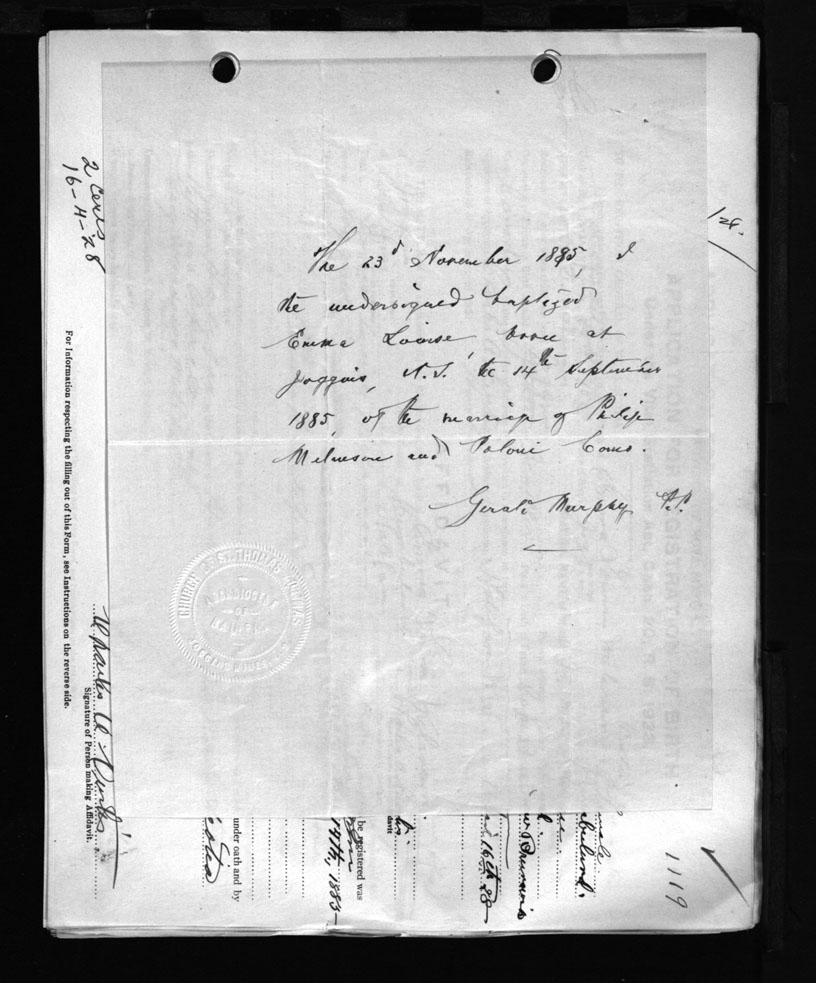 The 23d November 1885, I
the undersigned baptized
Emma Louise, born at
Joggins, N.S. the 14th September
1885, of the marriage of Philip
Melanson and
Gerald Murphy P.P.
CHURCH OF ST. THOMAS AQUINAS
ARCHDIOCESE
OF
HALIFAX
JOGGINS MINES, N.S.
2 cents
16-4-28
For Information respecting the filling out of this Form, see Instructions on the reverse side.
Signature of Person making Affidavit.
under oath and by
be registered was
14th, 1885
davit
16th 28
1119